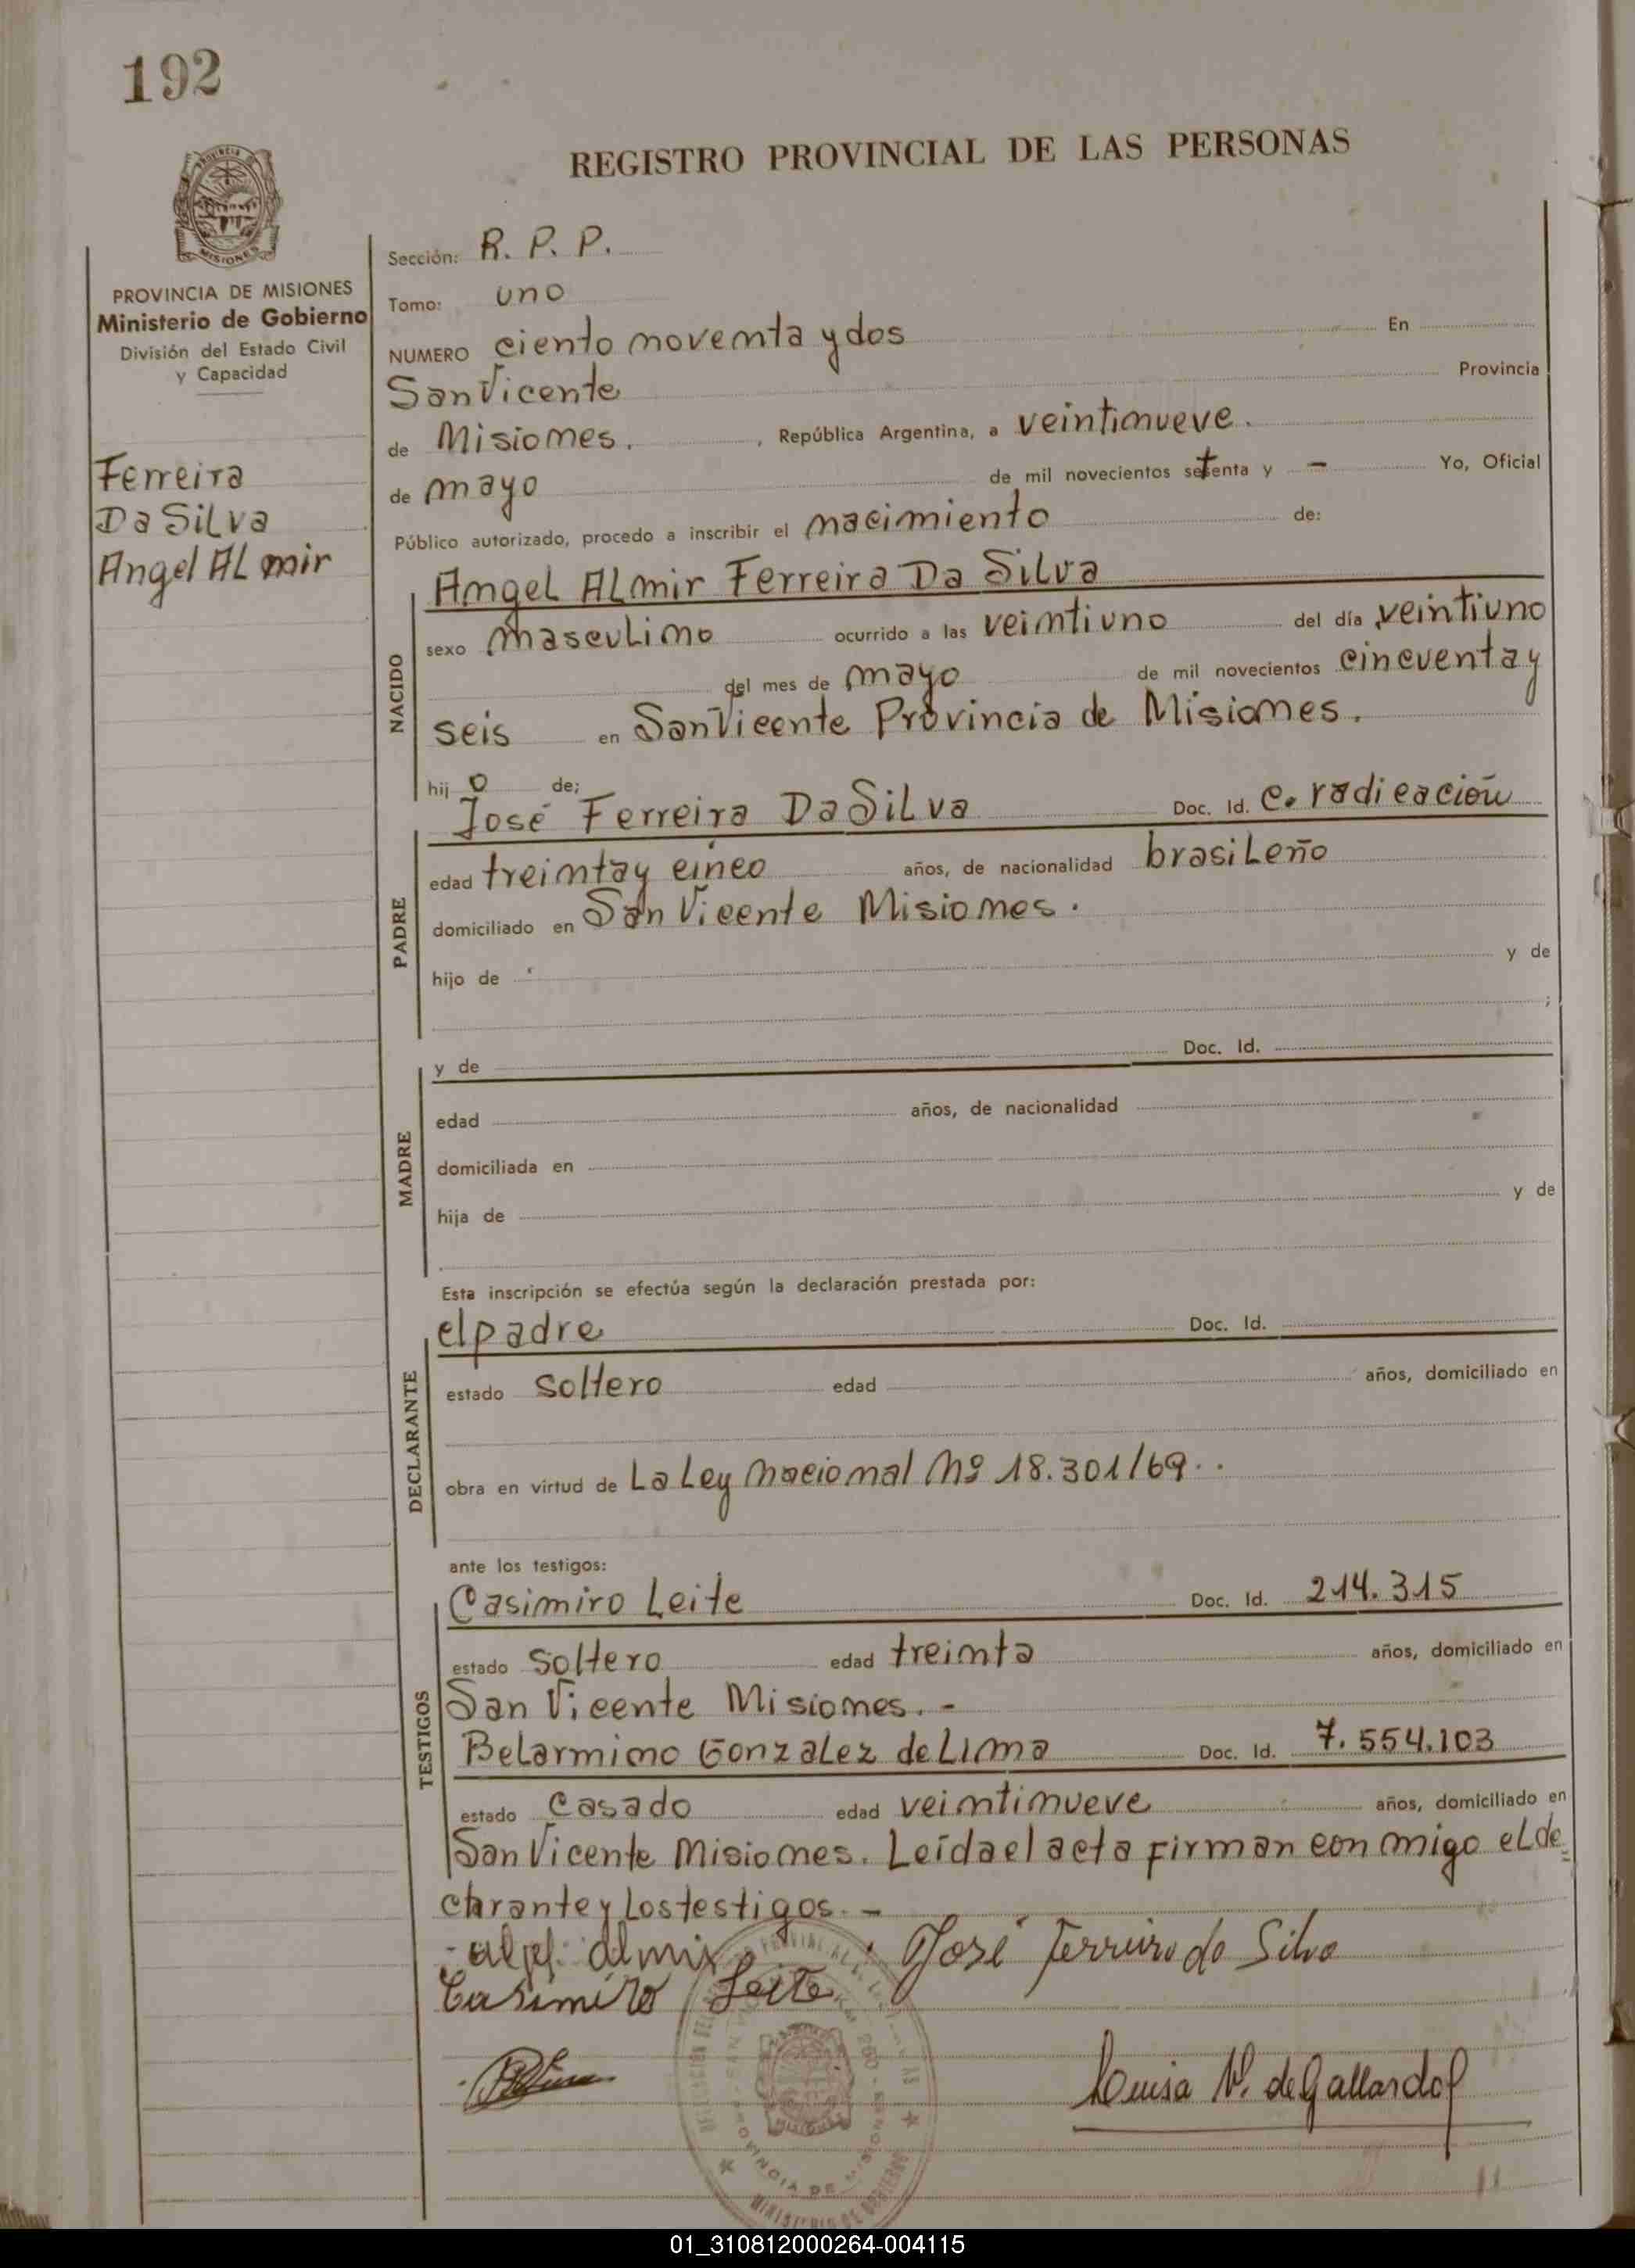 192
REGISTRO PROVINCIAL DE LAS PERSONAS
PROVINCIA DE MISIONES
Ministerio de Gobierno
División del Estado Civil
y Capacidad
Ferreira
Da Silva
Angel Almir
Sección: R. P. P.
Tomo: uno
NUMERO ciento noventa y dos En
San Vicente Provincia
de Misiones. , República Argentina, a veintinueve.
de mayo de mil novecientos setenta y - Yo, Oficial
Público autorizado, procedo a inscribir el nacimiento de:
NACIDO
Angel Almir Ferreira Da Silva
sexo masculino ocurrido a las veintiuno del día veintiuno
del mes de mayo de mil novecientos cincuenta y
seis en San Vicente Provincia de Misiones.
hij o de;
PADRE
José Ferreira Da Silva Doc. Id. C. radicación
edad treinta y cinco años, de nacionalidad brasileño
domiciliado en San Vicente Misiones.
hijo de y de
;
MADRE
y de Doc. Id.
edad años, de nacionalidad
domiciliada en
hija de y de
Esta inscripción se efectúa según la declaración prestada por:
DECLARANTE
el padre Doc. Id.
estado soltero edad años, domiciliado en
obra en virtud de La Ley nacional Nº 18.301/69..
ante los testigos:
TESTIGOS
Casimiro Leite Doc. Id. 214.315
estado soltero edad treinta años, domiciliado en
San Vicente Misiones. -
Belarmino Gonzalez de Lima Doc. Id. 7.554.103
estado Casado edad veintinueve años, domiciliado en
San Vicente Misiones. Leída el acta firman con migo el de=
clarante y los testigos. -
almir José Ferreira da Silva
Casimiro Leite
Luisa V. de Gallardo
01_310812000264-004115